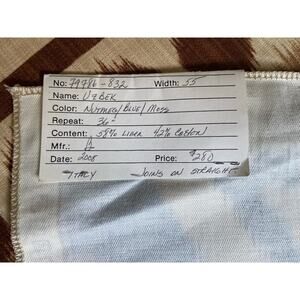 No: 79786-832 Width: 55
Name: UZBEK
Color: NUTMEG/BLUE/MOSS
Repeat: 36"
Content: 58% LINEN 42% COTTON
Mfr.:
Date: 2008 Price: $280
ITALY JOINS ON STRAIGHT